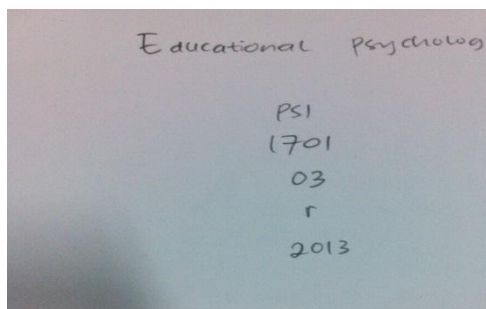 Educational psycholog
PSI
1701
03
r
2013